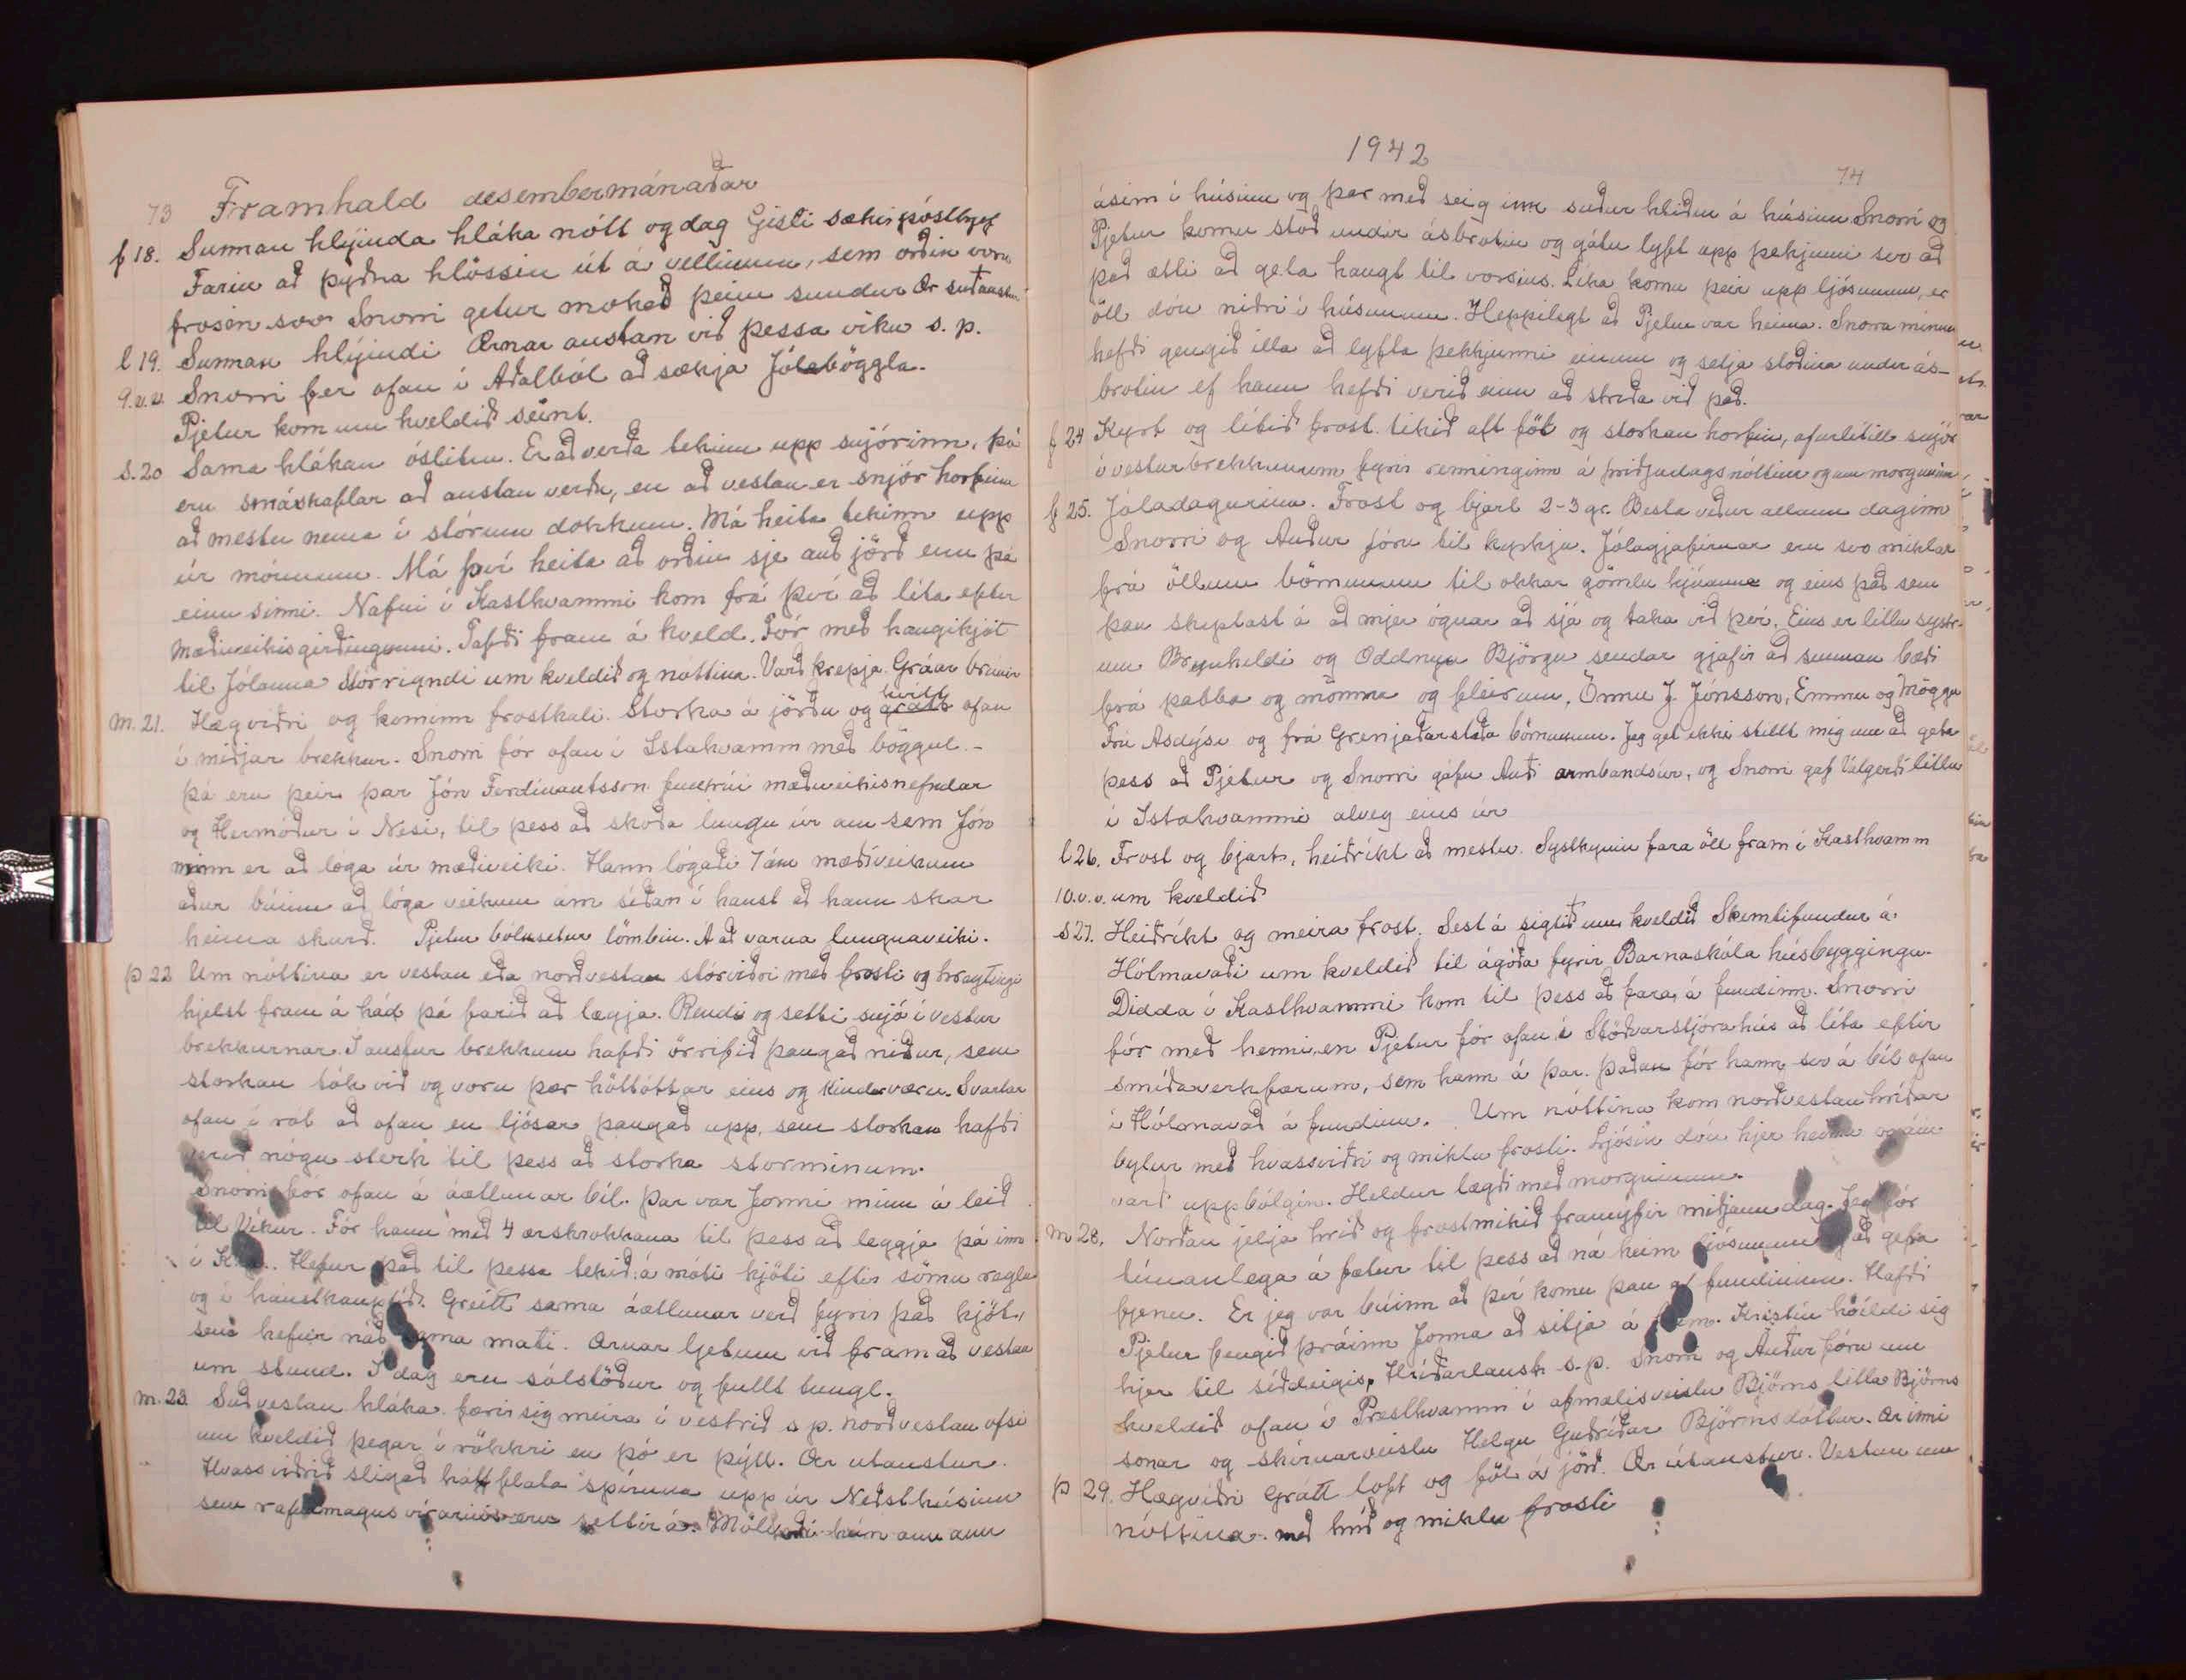 73 Framhald desembermánaðar
f 18. Sunnan hlýinda hláka nótt og dag Gísli sækir póstbrjef
Farin að þyðna hlössin út á vellinum, sem orðin voru
frosin svo Snorri getur mokað þeim sundur Ær suðaustur
l 19. Sunnan hlýindi Ærnar austan við þessa viku s. p.
9.v.v. Snorri fer ofan í Aðalból að sækja Jólaböggla.
Pjetur kom um kveldið seint.
S. 20 Sama hlákan óslitin. Er að verða tekinn upp snjórinn, þó
eru smáskaflar að austan verðu, en að vestan er snjór horfinn
að mestu nema í stórum dokkum. Má heita tekinn upp
úr mónum. Má því heita að orðin sje auð jörð enn þá
einu sinni. Nafni í Kasthvammi kom frá því að líta eftir
mæðiveikisgirðingunni. Tafði fram á kveld. Fór með hangikjöt
til Jólanna Stórrigndi um kveldið og nóttina. Varð krepja. Gráar brúnir
m. 21. Hægviðri og kominn frostkali. Storka á jörðu og hvítt grátt ofan
í miðjar brekkur. Snorri fór ofan í Ístahvamm með böggul. -
þá eru þeir þar Jón Ferdínantsson fulltrúi mæðiveikisnefndar
og Hermóður í Nesi, til þess að skoða lungu úr am sem Jón
minn er að lóga úr mæðiveiki. Hann lógaði 7 ám mæðiveikum
áður búinn að lóga veikum ám síðan í haust að hann skar
heima skurð. Pjetur bólusetur lömbin. Á að varna lungnaveiki.
þ 22 Um nóttina er vestan eða norðvestan stórviðri með frosti og hragling
hjelst fram á hád þá farið að lægja. Rendi og setti snjó í vestur
brekkurnar. Í austur brekkum hafði örrifið þangað niður, sem
storkan tók við og voru þær höltóttar eins og kindur væru. Svartar
ofan í rot að ofan en ljósar þangað upp, sem storkan hafði
verið nógu sterk til þess að storka storminum.
Snorri fór ofan á áætlunar bíl. Þar var Jonni minn á leið
til Víkur. Fór hann með 4 ærskrokkana til þess að leggja þá inn
í K. Hefur það til þessa tekið á móti kjöti eftir sömu reglu
og í haustkauptíð. Greitt sama áætlunar verð fyrir það kjöt,
sem hefur náð sama mati. Ærnar ljetum við fram að vestan
um stund. Í dag eru sólstöður og fullt tungl.
m. 23 Suðvestan hláka færir sig meira í vestrið s p. norðvestan ofsi
um kveldið þegar í rökkri en þó er þýtt. Ær utaustur.
Hvassviðrið sligað hátt flata spíruna upp úr Neðsthúsinu
sem rafurmagns vírarnir eru settir á. Mölvaði hún ann
1942
74
ásinn í húsinu og þar með seig inn suður hliðin á húsinu Snorri og
Pjetur komu stoð undir ásbrotin og gátu lyft upp þekjunni svo að
það ætti að geta hangt til vorsins. Líka komu þeir upp ljósunum, er
öll dóu niðri í húsunum. Heppilegt að Pjetur var heima. Snorra mínum
hefði gengið illa að lyfta þekkjunni einum og setja stoðina undir ás-
brotin ef hann hefði verið einn að stríða við það.
f 24 Kyrt og lítið frost. tekið aft föl og storkan horfin, ofurlítill snjór
í vesturbrekkunum fyrir renninginn á þriðjudagsnóttina og um morguninn
f 25. Jóladagurinn. Frost og bjart 2-3 gr. Besta veður allann daginn
Snorri og Auður fóru til kyrkju. Jólagjafirnar eru svo miklar
frá öllum börnunum til okkar gömlu hjúanna og eins það sem
þau skiptast á að mjer ógnar að sjá og taka við því. Eins er litlu systr-
um Brynhildi og Oddnýu Björgu sendar gjafir að sunnan bæði
frá pabba og mömmu og fleirum, Önnu J. Jónsson, Emmu og Möggu
Frú Ásdýsi og frá Grenjaðarstaða börnunum. Jeg get ekki stillt mig um að geta
þess að Pjetur og Snorri gáfu Auði armbandsúr, og Snorri gaf Valgerði litlu
í Ístahvammi alveg eins úr
l 26. Frost og bjart, heiðríkt að mestu. Systkynin fara öll fram í Kasthvamm
10.v.v. um kveldið
s 27. Heiðríkt og meira frost. Sest á sigtið um kveldið Skemtifundur á
Hólmavaði um kveldið til ágóða fyrir Barnaskóla húsbyggingu.
Didda í Kasthvammi kom til þess að fara á fundinn. Snorri
fór með henni, en Pjetur fór ofan í Stöðvarstjórahús að líta eftir
smíðaverkfærum, sem hann á þar. Þaðan fór hann svo á bíl ofan
í Hólmavað á fundinn. Um nóttina kom norðvestan hríðar
bylur með hvassviðri og miklu frosti. Ljósin dóu hjer heima og áin
varð uppbólgin. Heldur lægði með morgninum.
m 28. Norðan jelja hríð og frostmikið framyfir miðjann dag. Jeg fór
tímanlega á fætur til þess að ná heim ljósunum og að gefa
fjenu. Er jeg var búinn að því komu þau af fundinum. Hafði
Pjetur fengið þráinn Jonna að sitja á Kristín höldi sig
hjer til síðdeigis. Hríðarlaust s. p. Snorri og Auður fóru um
kveldið ofan í Presthvamm í afmælisveislu Björns litla Björns
sonar og skírnarveislu Helgu Guðríðar Björnsdóttur. Ær inni
þ 29. Hægviðri Grátt loft og föl á jörð. Ær útaustur. Vestan um
nóttina með hríð og miklu frosti